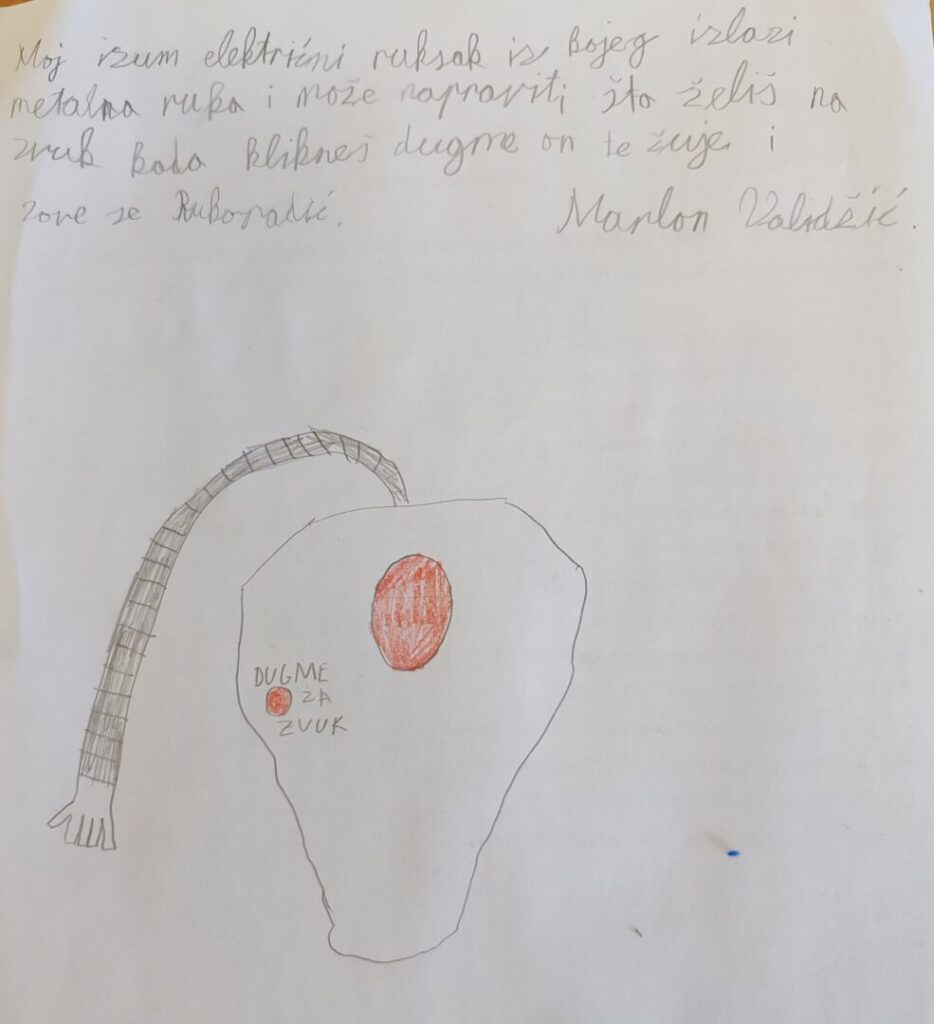 Moj izum električni ruksak iz kojeg izlazi
metalna ruka i može napraviti što želiš na
zvuk kada klikneš dugme on te žuje i
zove se Rukoradić.
Marlon Validžić.
DUGME
ZA
ZVUK